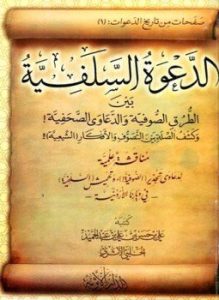 صفحات من تاريخ الدعوات: (٩)
الدعوة السلفية
بين
الطرق الصوفية والدعاوى الصحفية!
وكشف الصلة بين التصوف والأفكار الشيعية!!
مناقشة علمية
لدعاوى تجذير (الصوفية) و تهميش (السلفية)
- في ديارنا الأردنية -
كتبه
علي بن حسن بن علي بن عبد الحميد
الحلبي الأثري